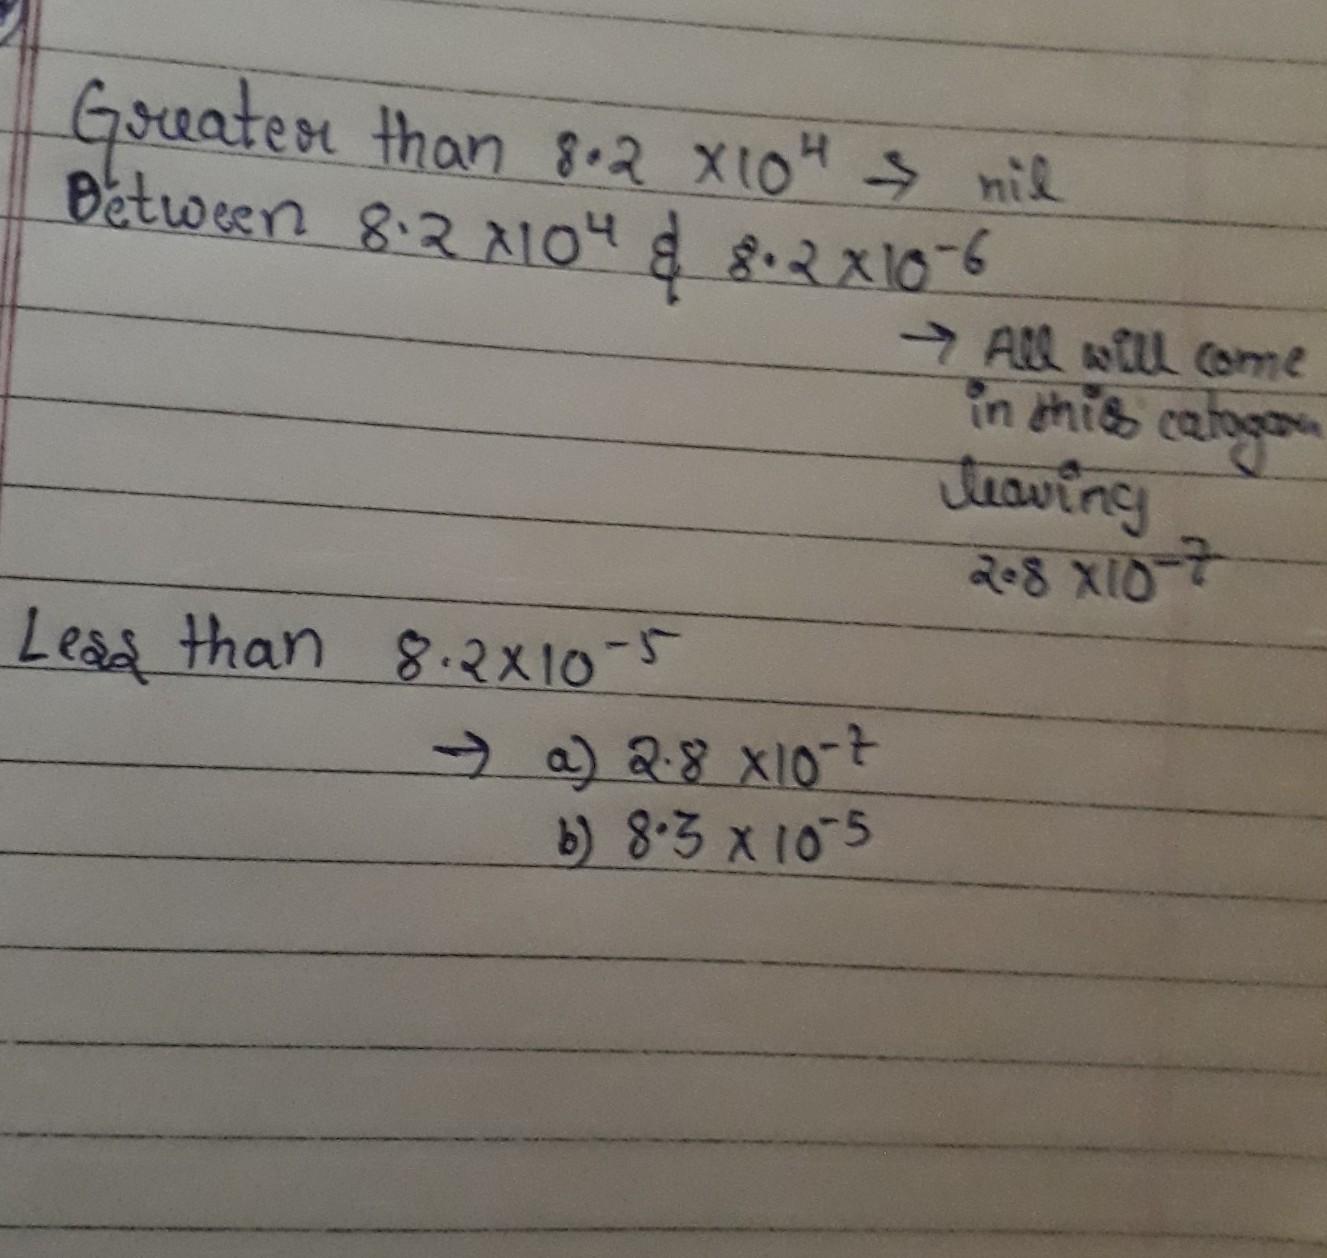 Greater than 8.2 ×10⁴ → nil
Between 8.2 ×10⁴ & 8.2 ×10⁻⁶
→ All will come
in this
leaving
2.8 ×10⁻⁷
Less than 8.2×10⁻⁵
→ a) 2.8 ×10⁻⁷
b) 8.3 × 10⁻⁵